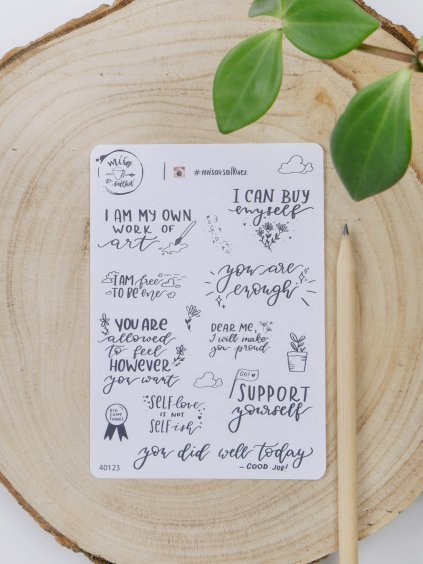 misa
#misavsalkuez
I CAN BUY
myself
I AM MY OWN
WORK OF
art
I AM free
TO BE me
you are
enough
YOU ARE
allowed
to feel
HOWEVER
you want
DEAR ME,
I will make
you proud
GO!
SUPPORT
yourself
DID
SOME
THINGS
SELF-LOVE
IS NOT
SELF-ish
you did well today
- GOOD JOB!
40123